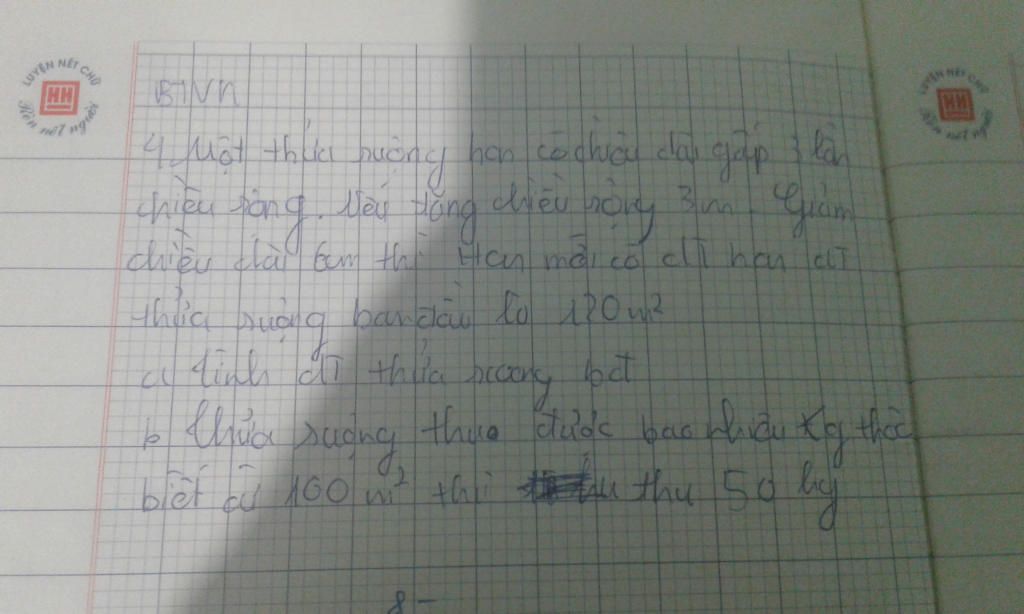 LUYỆN NÉT CHỮ
HH
Rèn nết người
BTVN
4, Một thửa ruộng hcn có chiều dài gấp 3 lần
chiều rộng. Nếu tăng chiều rộng 3m. Giảm
chiều dài 6m thì Hcn mới có dt hơn dt
thửa ruộng ban đầu là 120 m²
a tính dt thửa ruộng bđ
b thửa ruộng thu được bao nhiêu kg thóc
biết cứ 100 m² thì thu 50 kg
8 -